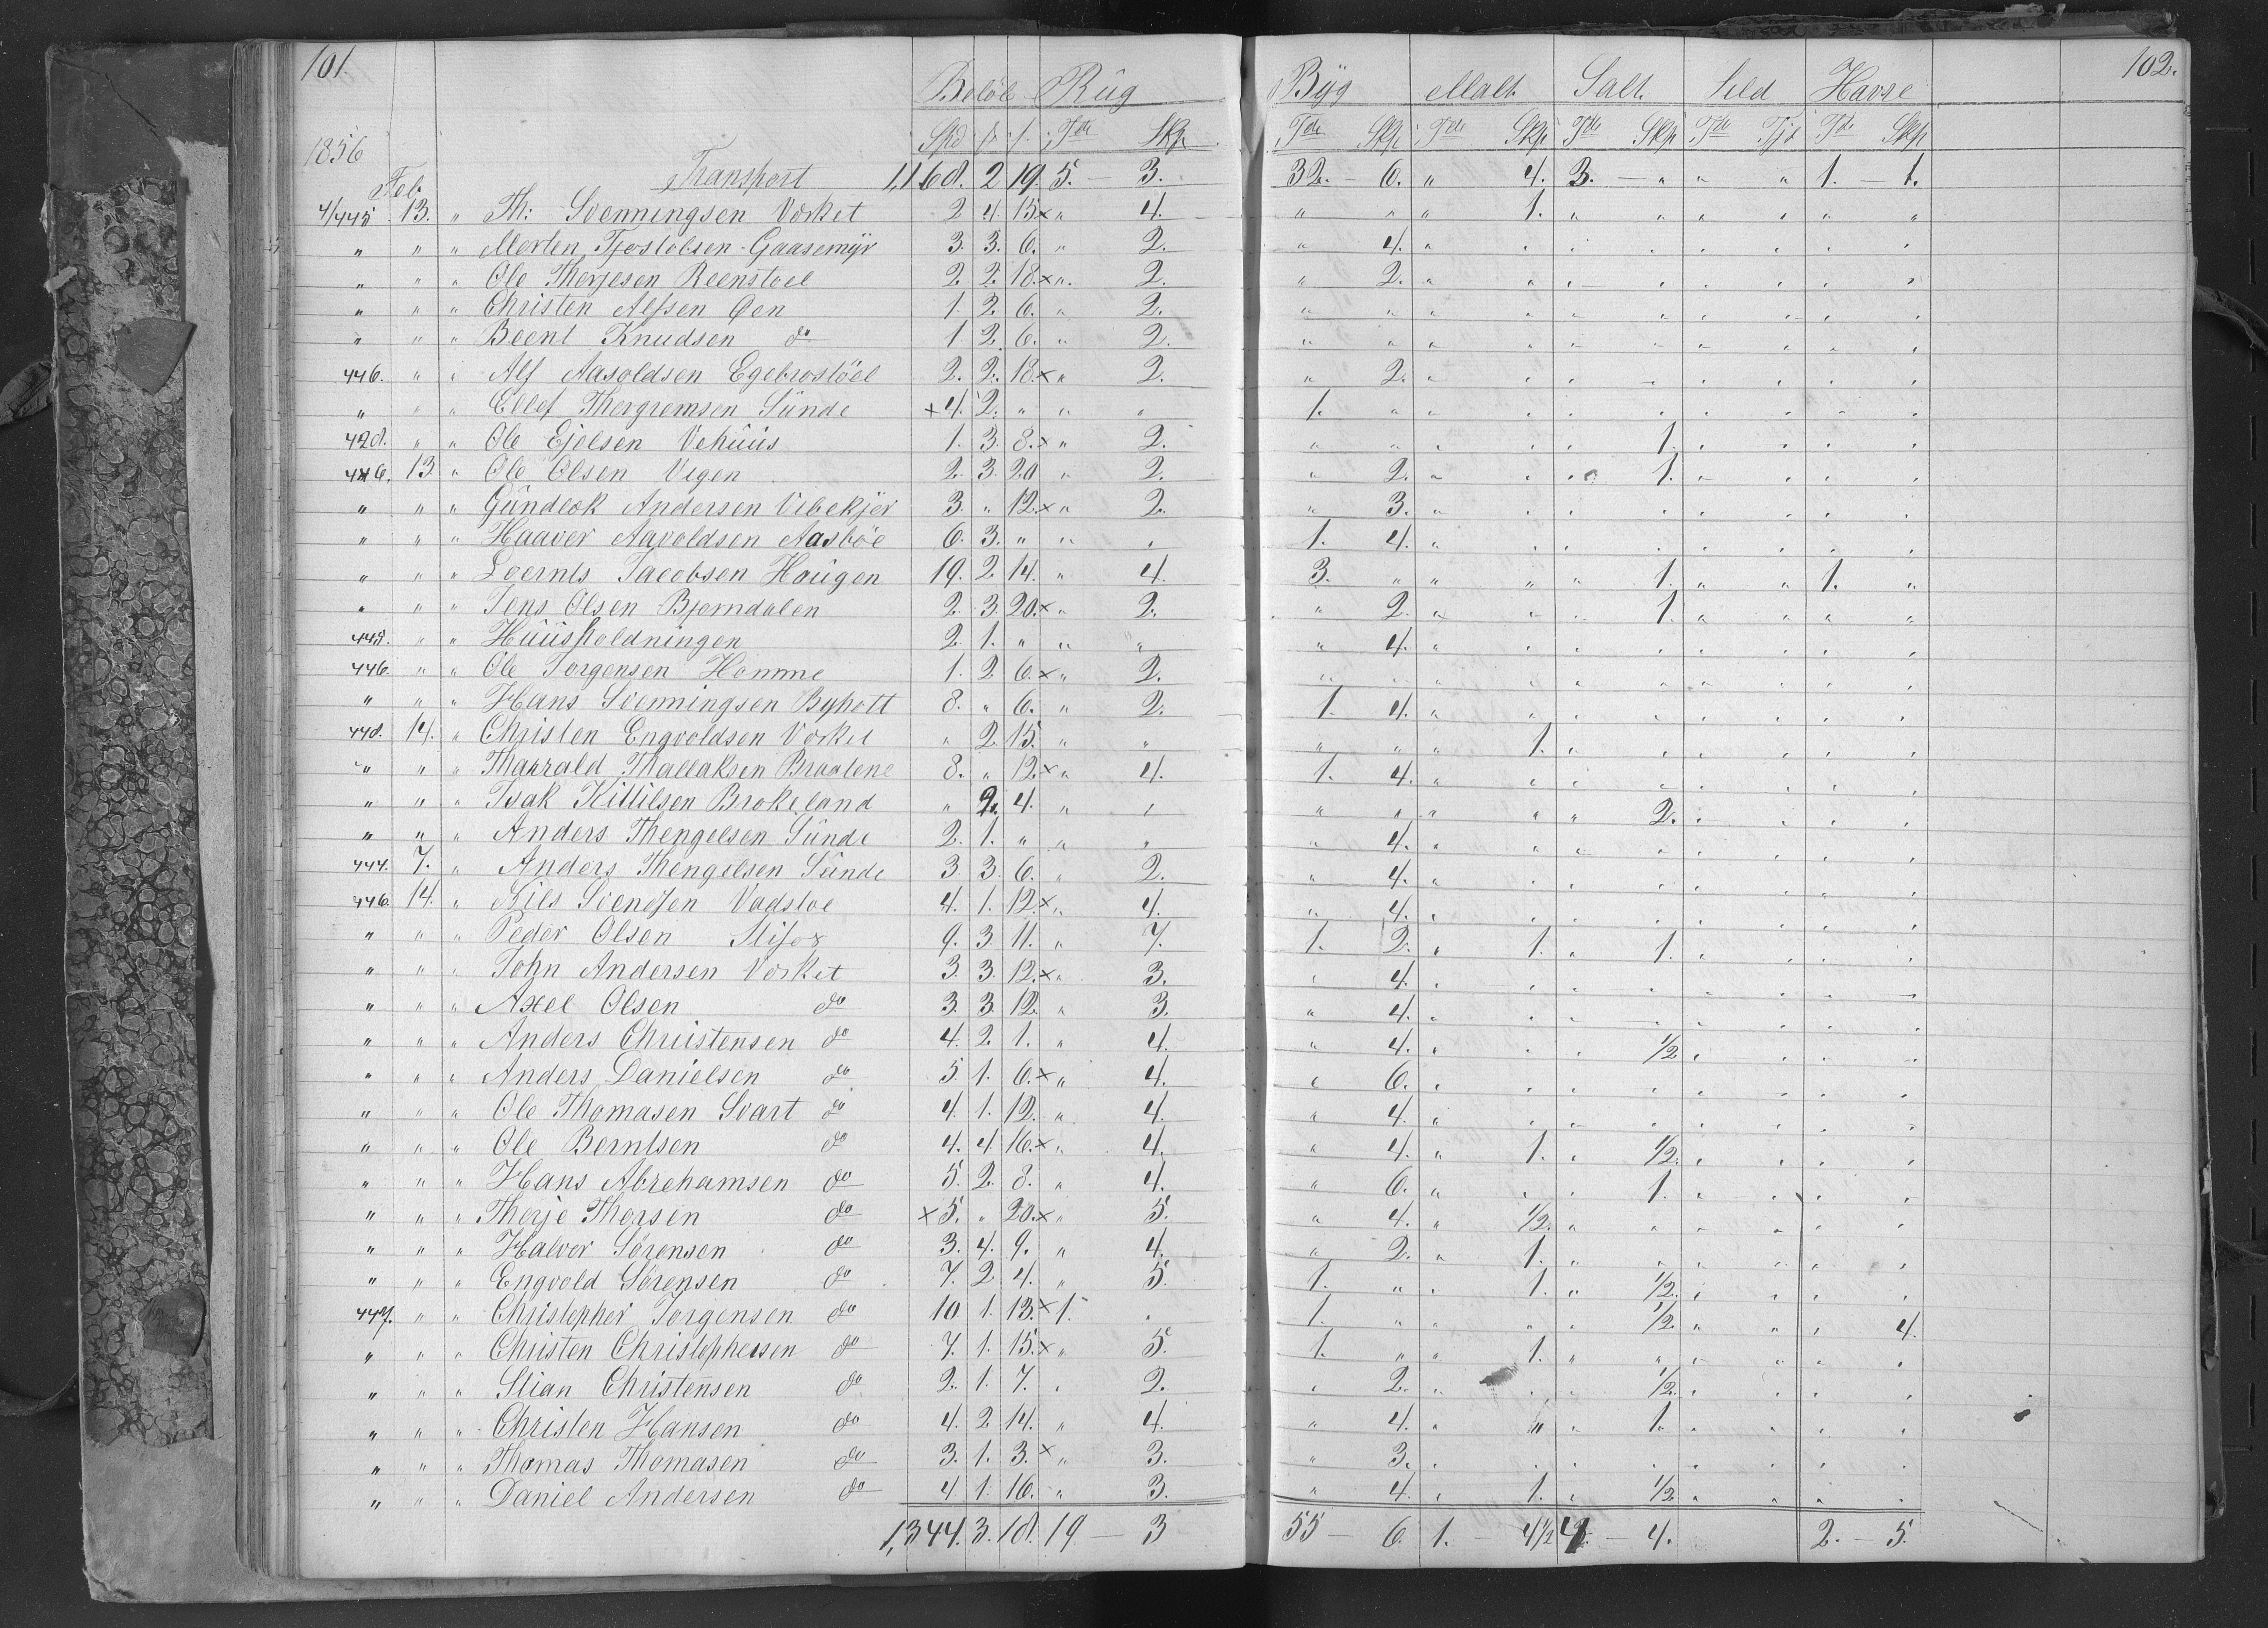 101. 102.
Beløb Rüg Byg Malt. Salt. Sild Havre
1856 Spd ß. Tde Skp. Tde Skp. Tde Skp Tde Skp Tde Tde Skp
Feb. Transport 1,168. 2 19. 5. — 3. 32. — 6. " 4. 3. — " " " 1. — 1.
4/445 13. " Th: Svenningsen Vasket 2 4. 15 × " 4. " " " 1. " " " " " "
" " " Morten Tjostolvsen Gaasemÿr 3. 3. 6. " 2. " 4. " " " " " " " "
" " " Ole Therjesen Reenstoel 2. 2. 18. × " 2. " 2. " " " " " " " "
" " " Christen Alfsen Øen 1. 2. 6. " 2. " " " " " " " " " "
" " " Beent Knudsen do 1 2. 6. " 2. " " " " " " " " " "
446. " " Alf Aasoldsen Egebrostöel 2. 2. 18. × " 2. " 2. " " " " " " " "
" " " Ellef Thorgremsen Sünde × 4. 2. " " " 1. " " " " " " " " "
428. " " Ole Ejelsen Vehüüs 1. 3. 8. × " 2. " " " " " 1. " " " "
446. 13. " Ole Olsen Vegen 2. 3. 20 " 2. " 2. " " " 1. " " " "
" " " Gündlek Andersen Vibekjer 3. " 12. × " 2. " 3. " " " " " " " "
" " " Haaver Aavoldsen Aasböe 6. 3. " " " 1. 4. " " " " " " " "
" " " Loernts Jacobsen Haügen 19. 2. 14. " 4. 3. " " " " 1. " " 1. "
" " " Jens Olsen Bjorndalen 2. 3. 20. × " 2. " 2. " " " 1. " " " "
448. " " Hüüsholdningen 2. 1. " " " " 4. " " " " " " " "
446. " " Ole Jorgensen Homme 1. 2. 6. × " 2. " " " " " " " " " "
" " " Hans Svenningsen Byholt 8. " 6. " 2. 1. 4. " " " " " " " "
448. 14. " Christen Engvoldsen Vasket " 2. 15. " " " " " 1. " " " " " "
" " " Thaarald Thallaksen Braatene 8. " 12. × " 4. 1. 4. " " " " " " " "
" " " Isak Kittilsen Brokeland " 2. 4. " " " " " " " 2. " " " "
" " " Anders Thengelsen Sünde 2. 1. " " " " 4. " " " " " " " "
444. 7. " Anders Thengelsen Sünde 3. 3. 6. " 2. " 4. " " " " " " " "
446 14. " Nils Svendsen Vadstoe 4. 1. 12 × " 4. " 4. " " " " " " " "
" " " Peder Olsen Stifox 9. 3. 11. " 7. 1. 2. " 1. " 1. " " " "
" " " John Andersen Vasket 3. 3. 12. × " 3. " 4. " " " " " " " "
" " " Axel Olsen do 3. 3. 12. " 3. " 4. " " " " " " " "
" " " Anders Christensen do 4. 2. 1. " 4. " 4. " " " 1/2 " " " "
" " " Anders Danielsen do 5. 1. 6. × " 4. " 6. " " " " " " " "
" " " Ole Thomasen Svart do 4. 1. 12. " 4. " 4. " " " " " " " "
" " " Ole Berntsen do 4. 4. 16. × " 4. " 4. " 1. " 1/2. " " " "
" " " Hans Abrehamsen do 5. 2. 8. " 4. " 6. " " " 1. " " " "
" " " Therje Thorsen do × 5. " 20. × " 5. " 4. " 1/2. " " " " " "
" " " Halvor Sørensen do 3. 4. 9. " 4. " 2. " 1. " " " " " "
" " " Engvold Sørensen do 7. 2. 4. " 5. 1. " " 1. " 1/2. " " " "
447. " " Christopher Jorgensen do 10 1. 13. × 1. " 1. " " " " 1/2. " " " 4.
" " " Christen Christophersen do 7. 1. 15. × " 5. 1. " " 1. " " " " " "
" " " Stian Christensen do 2. 1. 7. " 2. " 2. " " " 1/2. " " " "
" " " Christen Hansen do 4. 2 14. " 4. " 4. " " " 1. " " " "
" " " Thomas Thomasen do 3. 1. 3. × " 3. " 3. " " " " " " " "
" " " Daniel Andersen do 4 1. 16. " 3. " 4. " 1. " 1/2 " " " "
1,344. 3. 18. 19 — 3 55 — 6. 1. — 4 1/2 4. — 4. 2. — 5.